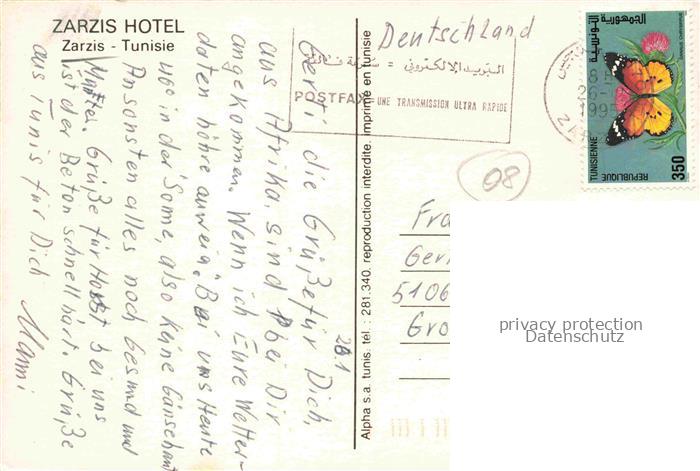 ZARZIS HOTEL
Zarzis - Tunisie
26.1
Gerri die Grüße für Dich,
aus Afrika sind bei Dir
angekommen. Wenn ich Eure Wetter-
daten höre auweia! Bei uns Heute
40° in der Sonne, also keine Gänsehaut
Ansonsten alles noch Gesund und
Munter. Grüße für Horst bei uns
ist der Beton schnell hart. Grüße
aus Tunis für Dich
Manni
Alpha s.a. tunis. tél.: 281.340. reproduction interdite. imprimé en tunisie
Deutschland
البريد الالكتروني =
POSTFAX = UNE TRANSMISSION ULTRA RAPIDE
26
1995
الجمهورية التونسية
REPUBLIQUE TUNISIENNE
350
08
Fra
Geri
5106
Gro
privacy protection
Datenschutz